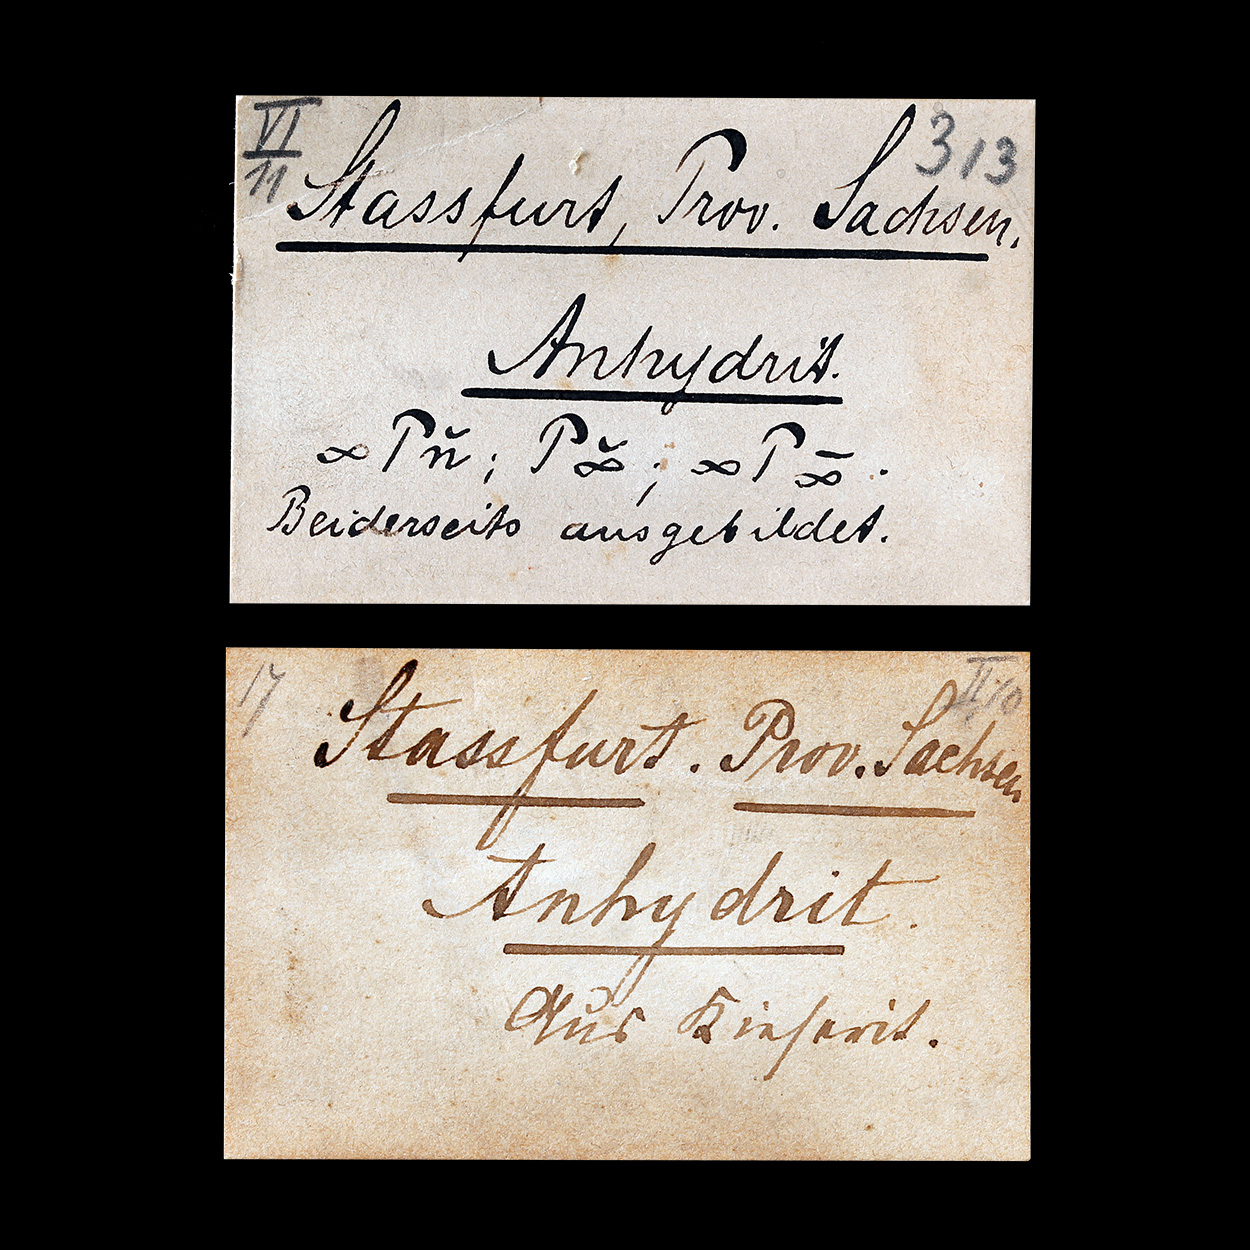 VI
11
313
Stassfurt, Prov. Sachsen.
Anhydrit.
∞Pn̆; P∞̆; ∞P∞̄.
Beiderseits ausgebildet.
17
II/10
Stassfurt. Prov. Sachsen
Anhydrit.
Aus Kieserit.